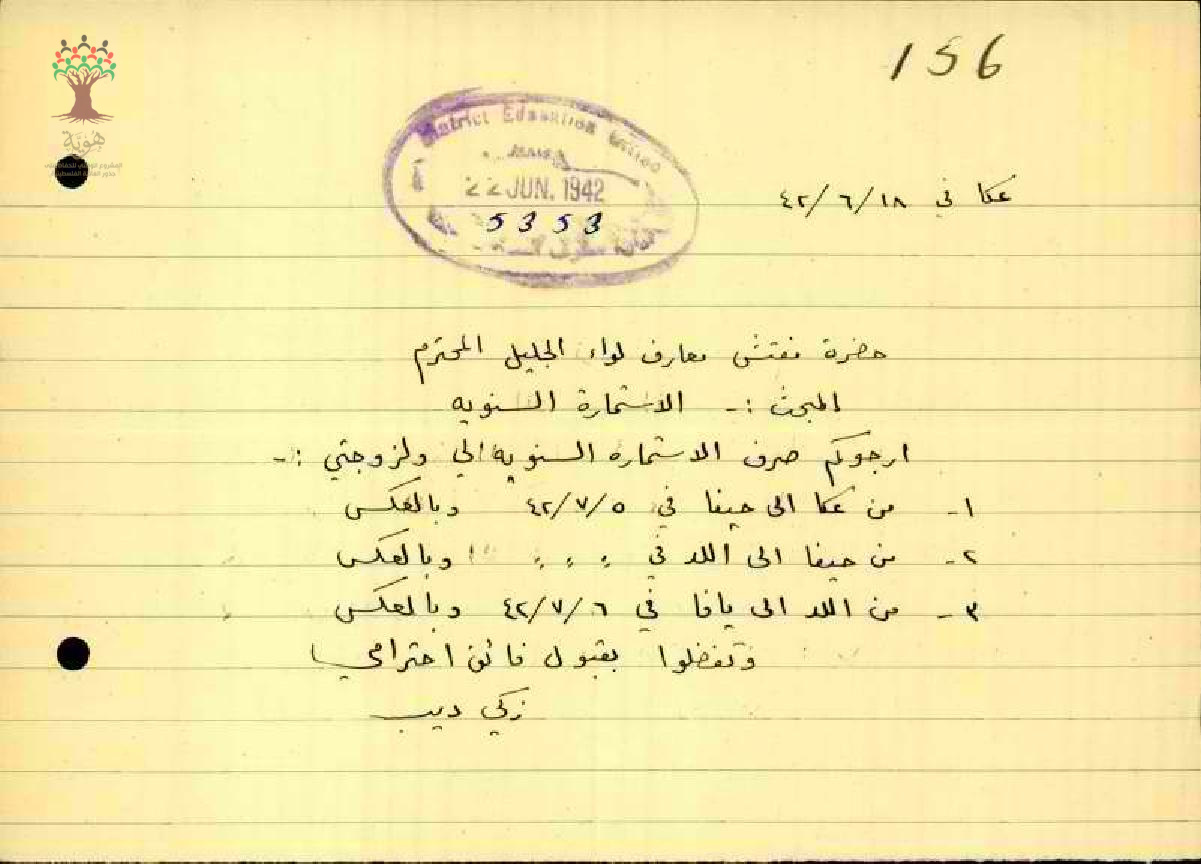 156
هَوِيَّة
District Education Office
22 JUN. 1942
5353
عكا في ١٨/٦/٤٢
حضرة مفتش معارف لواء الجليل المحترم
المبحث :- الاستمارة السنويه
ارجوكم صرف الاستماره السنويه الي ولزوجتي :-
١- من عكا الى حيفا في ٥/٧/٤٢ وبالعكس
٢- من حيفا الى اللد في " " " وبالعكس
٣- من اللد الى يافا في ٦/٧/٤٢ وبالعكس
وتفضلوا بقبول فائق احترامي
زكي ديب